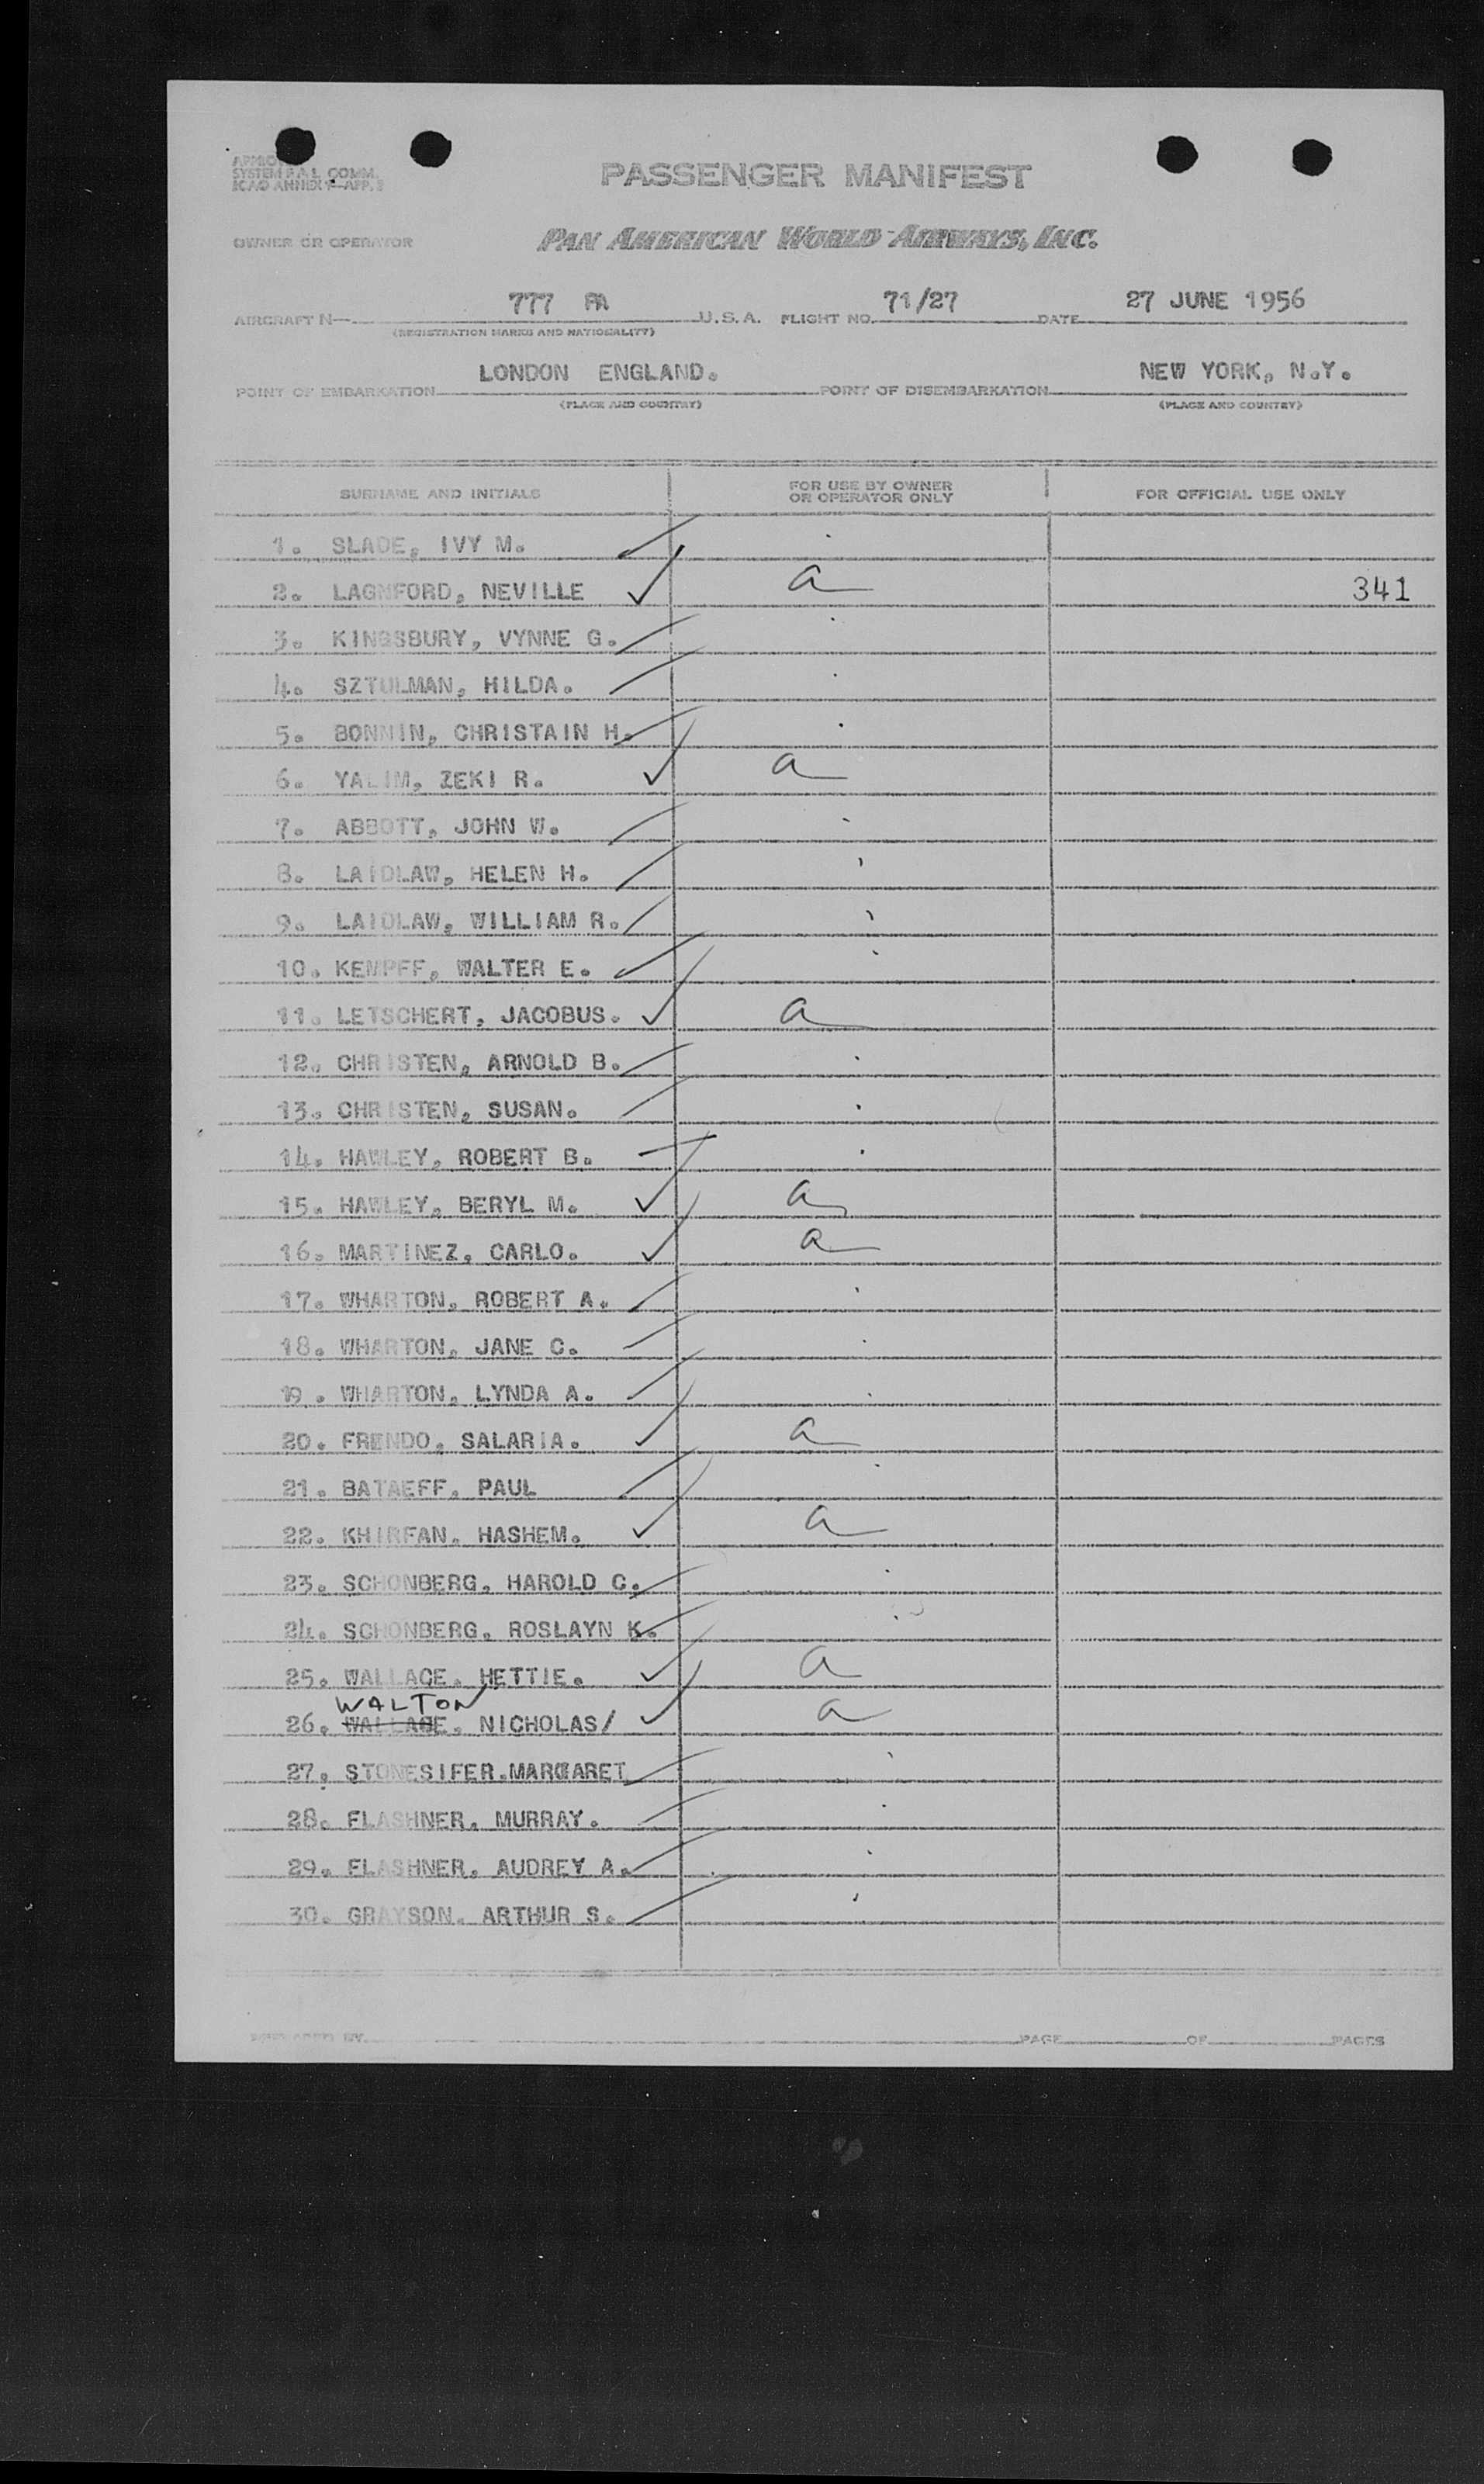 SYSTEM F.A.L. COMM.
ICAO ANNEX 9-APP. 3
PASSENGER MANIFEST
OWNER OR OPERATOR PAN AMERICAN WORLD AIRWAYS, INC.
AIRCRAFT N— 777 PA U.S.A. FLIGHT NO. 71/27 DATE 27 JUNE 1956
(REGISTRATION MARKS AND NATIONALITY)
POINT OF EMBARKATION LONDON ENGLAND. POINT OF DISEMBARKATION NEW YORK, N.Y.
(PLACE AND COUNTRY) (PLACE AND COUNTRY)
SURNAME AND INITIALS FOR USE BY OWNER OR OPERATOR ONLY FOR OFFICIAL USE ONLY
1. SLADE, IVY M.
2. LAGNFORD, NEVILLE a 341
3. KINGSBURY, VYNNE G.
4. SZTULMAN, HILDA.
5. BONNIN, CHRISTAIN H.
6. YALIM, ZEKI R. a
7. ABBOTT, JOHN W.
8. LAIDLAW, HELEN H.
9. LAIDLAW, WILLIAM R.
10. KEMPFF, WALTER E.
11. LETSCHERT, JACOBUS. a
12. CHRISTEN, ARNOLD B.
13. CHRISTEN, SUSAN.
14. HAWLEY, ROBERT B.
15. HAWLEY, BERYL M. a
16. MARTINEZ, CARLO. a
17. WHARTON, ROBERT A.
18. WHARTON, JANE C.
19. WHARTON, LYNDA A.
20. FRENDO, SALARIA. a
21. BATAEFF, PAUL
22. KHIRFAN, HASHEM. a
23. SCHONBERG, HAROLD C.
24. SCHONBERG, ROSLAYN K.
25. WALLACE, HETTIE. a
WALTON
26. WALLACE, NICHOLAS/ a
27. STONESIFER.MARGARET
28. FLASHNER, MURRAY.
29. FLASHNER, AUDREY A.
30. GRAYSON, ARTHUR S.
PREPARED BY PAGE OF PAGES